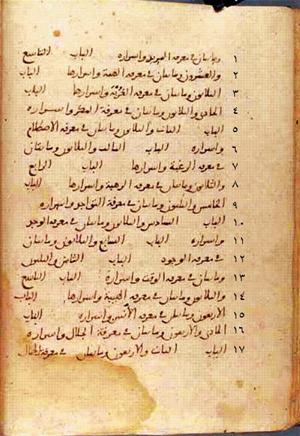 ١ ومايتان في معرفة المريد واسراره الباب التاسع
٢ والعشرون ومايتان في معرفة الهمة واسرارها الباب
٣ الثلاثون ومايتان في معرفة الغربة واسرارها الباب
٤ الحادي والثلاثون ومايتان في معرفة المكر واسراره
٥ الباب الثاني والثلاثون ومايتان في معرفة الاصطلام
٦ واسراره الباب الثالث والثلاثون ومايتان
٧ في معرفة الرغبة واسرارها الباب الرابع
٨ والثلاثون ومايتان في معرفة الرهبة واسرارها الباب
٩ الخامس والثلاثون ومايتان في معرفة التواجد واسراره
١٠ الباب السادس والثلاثون ومايتان في معرفة الوجد
١١ واسراره الباب السابع والثلاثون ومايتان
١٢ في معرفة الوجود الباب الثامن والثلثون
١٣ ومايتان في معرفة الوقت واسراره الباب التاسع
١٤ والثلاثون ومايتان في معرفة الهيبة واسرارها الباب
١٥ الاربعون ومايتان في معرفة الانس واسراره الباب
١٦ الحادي والاربعون ومايتان في معرفة الجلال واسراره
١٧ الباب الثاني والاربعون ومايتان في معرفة الجمال